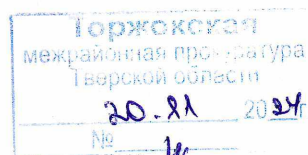 Торжокская
межрайонная прокуратура
Тверской области
20 2024г
№